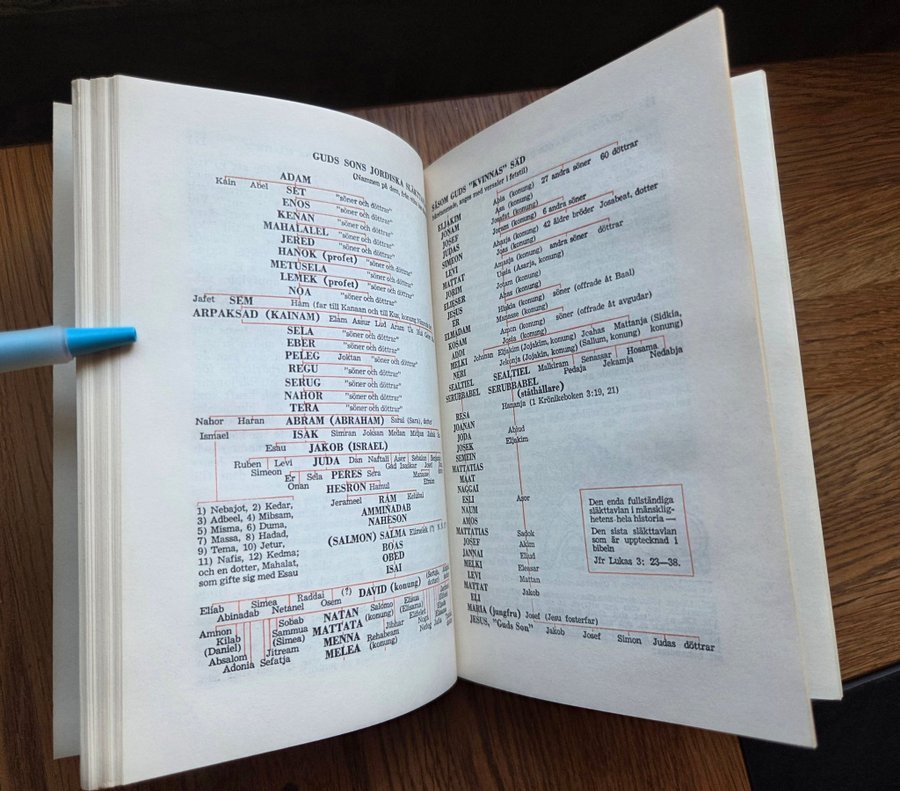 GUDS SONS JORDISKA
(Namnen på dem, från
ADAM
Kain Abel
SET "söner och döttrar"
ENOS "söner och döttrar"
KENAN "söner och döttrar"
MAHALALEL "söner och döttrar"
JERED "söner och döttrar"
HANOK (profet) "söner och döttrar"
METUSELA "söner och döttrar"
LEMEK (profet) "söner och döttrar"
NOA "söner och döttrar"
Jafet SEM Ham (far till Kanaan och till Kus,
ARPAKSAD (KAINAM) Elam Assur Lud Aram Us Hul
SELA "söner och döttrar"
EBER "söner och döttrar"
PELEG Joktan "söner och döttrar"
REGU "söner och döttrar"
SERUG "söner och döttrar"
NAHOR "söner och döttrar"
TERA "söner och döttrar"
Nahor Haran ABRAM (ABRAHAM) Sarai (Sara), dotter
Ismael ISAK Simran Joksan Medan Midjan
Esau JAKOB (ISRAEL)
Ruben Levi JUDA Dan Naftali Aser Sebulon
Simeon Gad Isaskar Josef
Er Sela PERES Sera
Onan
HESRON Hamul
Jerameel RAM Kelubai
AMMINADAB
NAHESON
(SALMON) SALMA
BOAS
OBED
ISAI
1) Nebajot, 2) Kedar,
3) Adbeel, 4) Mibsam,
5) Misma, 6) Duma,
7) Massa, 8) Hadad,
9) Tema, 10) Jetur,
11) Nafis, 12) Kedma;
och en dotter, Mahalat,
som gifte sig med Esau
Eliab Simea Raddai (?) DAVID (konung)
Abinadab Netanel Osem
Amnon Sobab NATAN Salomo
Kilab Sammua MATTATA (konung)
(Daniel) (Simea) MENNA Jibhar
Absalom Jitream MELEA Rehabeam
Adonia Sefatja (konung)
SÅSOM GUDS "KVINNAS" SÄD
angos med versaler i fetstil)
ELJAKIM Abia (konung) 27 andra söner 60 döttrar
JONAM Asa (konung)
JOSEF Josafat (konung)
JUDAS Joram (konung) 6 andra söner
SIMEON Ahasja (konung) 42 äldre bröder Josabeat, dotter
LEVI Joas (konung)
MATTAT Amasja (konung) andra söner döttrar
JORIM Ussia (Asarja, konung)
ELIESER Jotam (konung)
JESUS Ahas (konung)
ER Hiskia (konung) söner (offrade åt Baal)
ELMADAM Manasse (konung)
KOSAM Amon (konung) söner (offrade åt avgudar)
ADDI Josia (konung)
MELKI Johanan Eljakim (Jojakim, konung) Joahas Mattanja (Sidkia,
NERI Jekonja (Jojakin, konung) (Sallum, konung) konung)
SEALTIEL SEALTIEL Malkiram Senassar Hosama
SERUBBABEL SERUBBABEL Pedaja Jekamja Nedabja
(ståthållare)
RESA Hananja (1 Krönikeboken 3:19, 21)
JOANAN
JODA Abiud
JOSEK Eljakim
SEMEIN
MATTATIAS
MAAT
NAGGAI
ESLI Asor
NAUM
AMOS
MATTATIAS Sadok
JOSEF Akim
JANNAI Eliud
MELKI Eleasar
LEVI Mattan
MATTAT Jakob
ELI
MARIA (jungfru) Josef (Jesu fosterfar)
JESUS, "Guds Son" Jakob Josef Simon Judas döttrar
Den enda fullständiga
släkttavlan i mänsklig-
hetens hela historia —
Den sista släkttavlan
som är upptecknad i
bibeln
Jfr Lukas 3: 23—38.